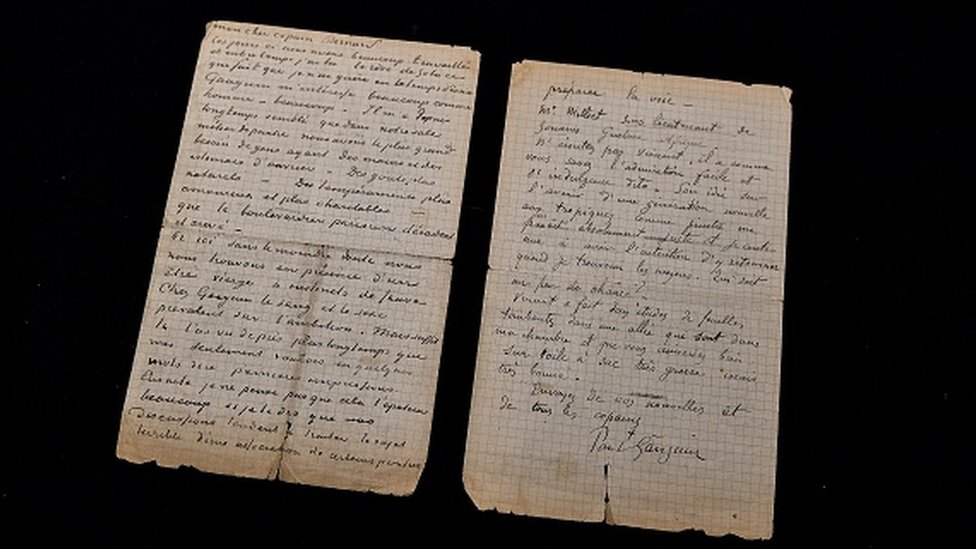 mon cher copain Bernard
Ces jours ci nous avons beaucoup travaillé
et entre temps j'ai lu le rêve de Zola ce
qui fait que je n'ai guère eu le temps d'écrire
Gauguin m'intéresse beaucoup comme
homme – beaucoup – Il m'a depuis
longtemps semblé que dans notre sale
métier de peintre nous avons le plus grand
besoin de gens ayant des mains et des
estomacs d'ouvrier – Des goûts plus
naturels – Des tempéraments plus
amoureux et plus charitables
que le boulevardier parisien décadent
et crevé –
Or ici sans le moindre doute nous
nous trouvons en présence d'un
être vierge à instincts de fauve
Chez Gauguin le sang et le sexe
prévalent sur l'ambition. Mais suffit
tu l'as vu de près plus longtemps que
moi seulement voulais en quelques
mots dire premières impressions
Ensuite je ne pense pas que cela t'épatera
beaucoup si je te dis que nos
discussions tendent à traiter le sujet
terrible d'une association de certains peintres
préparer la voie –
Mr Milliet sous lieutenant de
Zouaves Guelma Afrique
N'écoutez pas Vincent, il a comme
vous savez l'admiration facile et
l'indulgence dito. Son idée sur
l'avenir d'une génération nouvelle
aux tropiques comme peintre me
paraît absolument juste et je conti-
nue à avoir l'intention d'y retourner
quand je trouverai les moyens. Qui sait
un peu de chance?
Vincent a fait deux études de feuilles
tombantes dans une allée qui sont dans
ma chambre et que vous aimeriez bien
sur toile à sac très grosse mais
très bonne.
Envoyez de vos nouvelles et
de tous les copains
Paul Gauguin